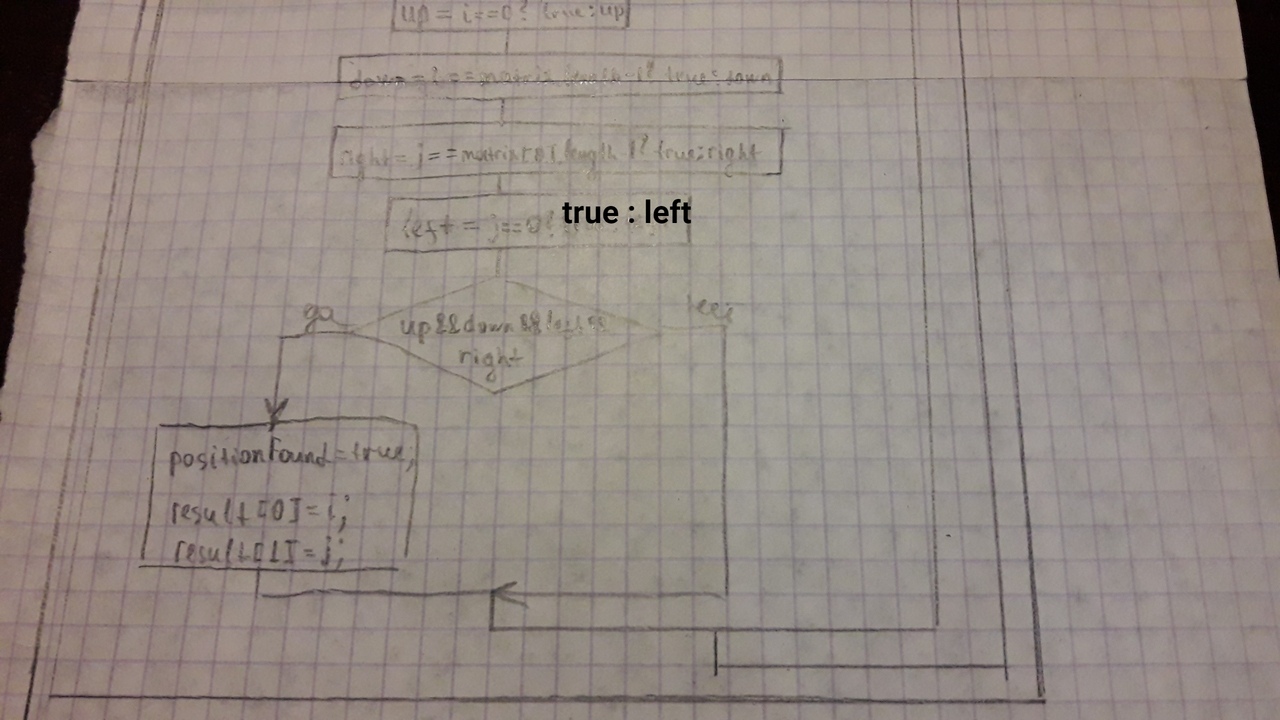 up = i==0? true:up
down = i == matrix.length-1? true:down
right = j==matrix[0].length-1? true:right
left = j==0? true : left
да
up&&down&&left&&
right
positionFound=true;
result[0]=i;
result[1]=j;